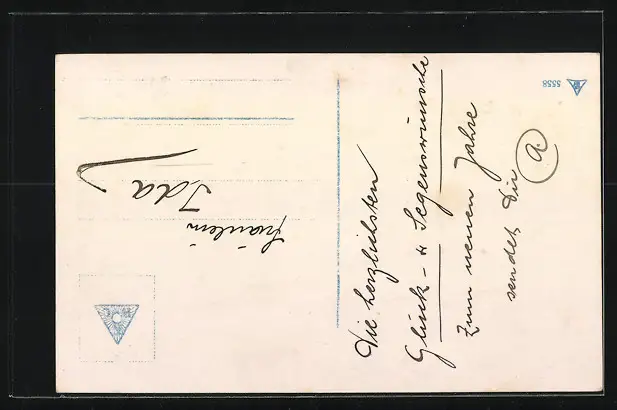 Die herzlichsten
Glück- & Segenswünsche
Zum neuen Jahre
sendet Dir
A.
Fräulein
Ida
5558